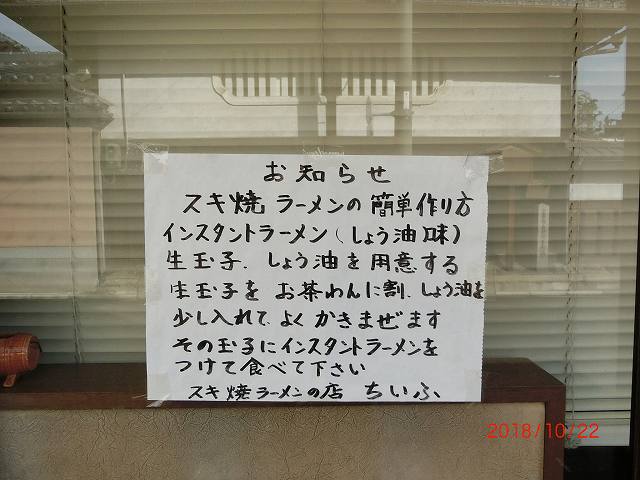 お知らせ
スキ焼ラーメンの簡単作り方
インスタントラーメン(しょう油味)
生玉子、しょう油を用意する
生玉子を お茶わんに割、しょう油を
少し入れて、よくかきまぜます
その玉子にインスタントラーメンを
つけて食べて下さい
スキ焼ラーメンの店 ちいふ
2018/10/22